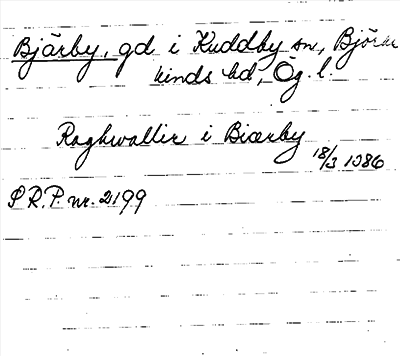 Bjärby, gd i Kuddby sn, Björke
kinds hd, Ög. l.
Raghwaller i Biærby
18/3 1386
S R.P. nr. 2199